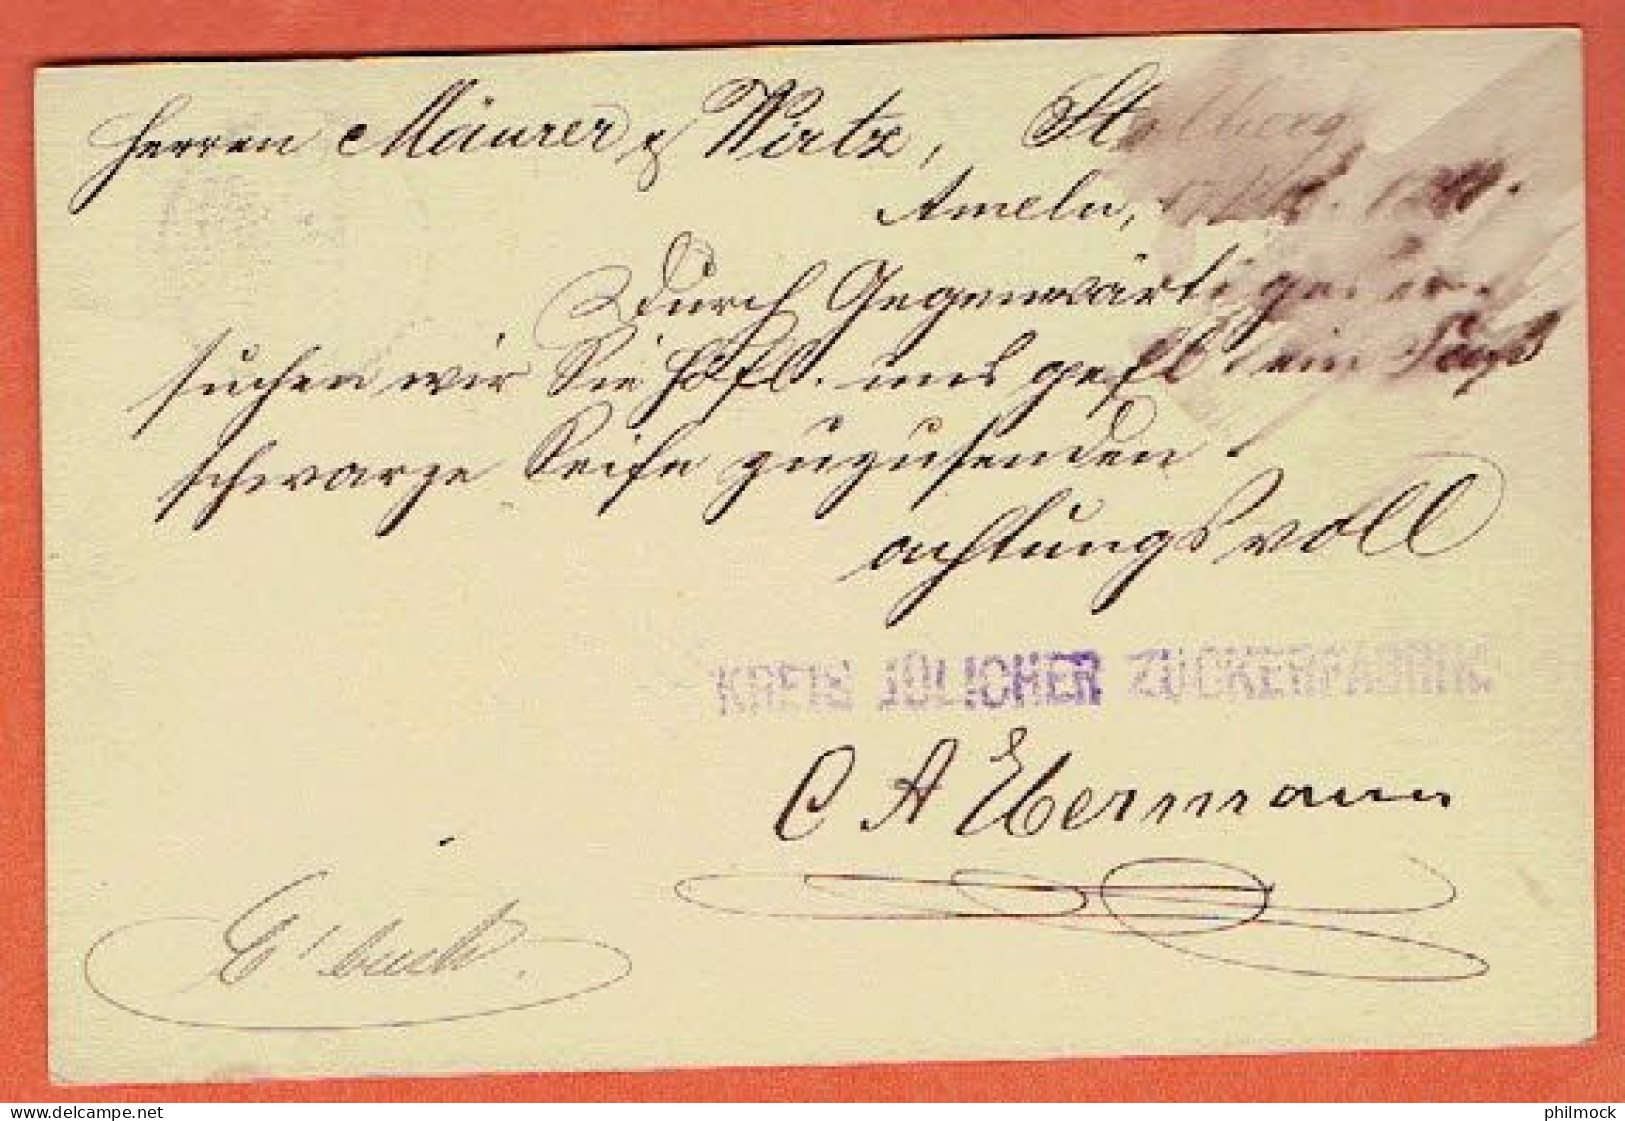 Herren Mäurer & Wirtz, Stolberg
Ameln,
Durch Gegenwärtiges er-
suchen wir Sie höfl. uns gefl. ein Fass
schwarze Seife zuzusenden.
achtungsvoll
KREIS JÜLICHER ZUCKERFABRIK.
C A Ebermann
philmock